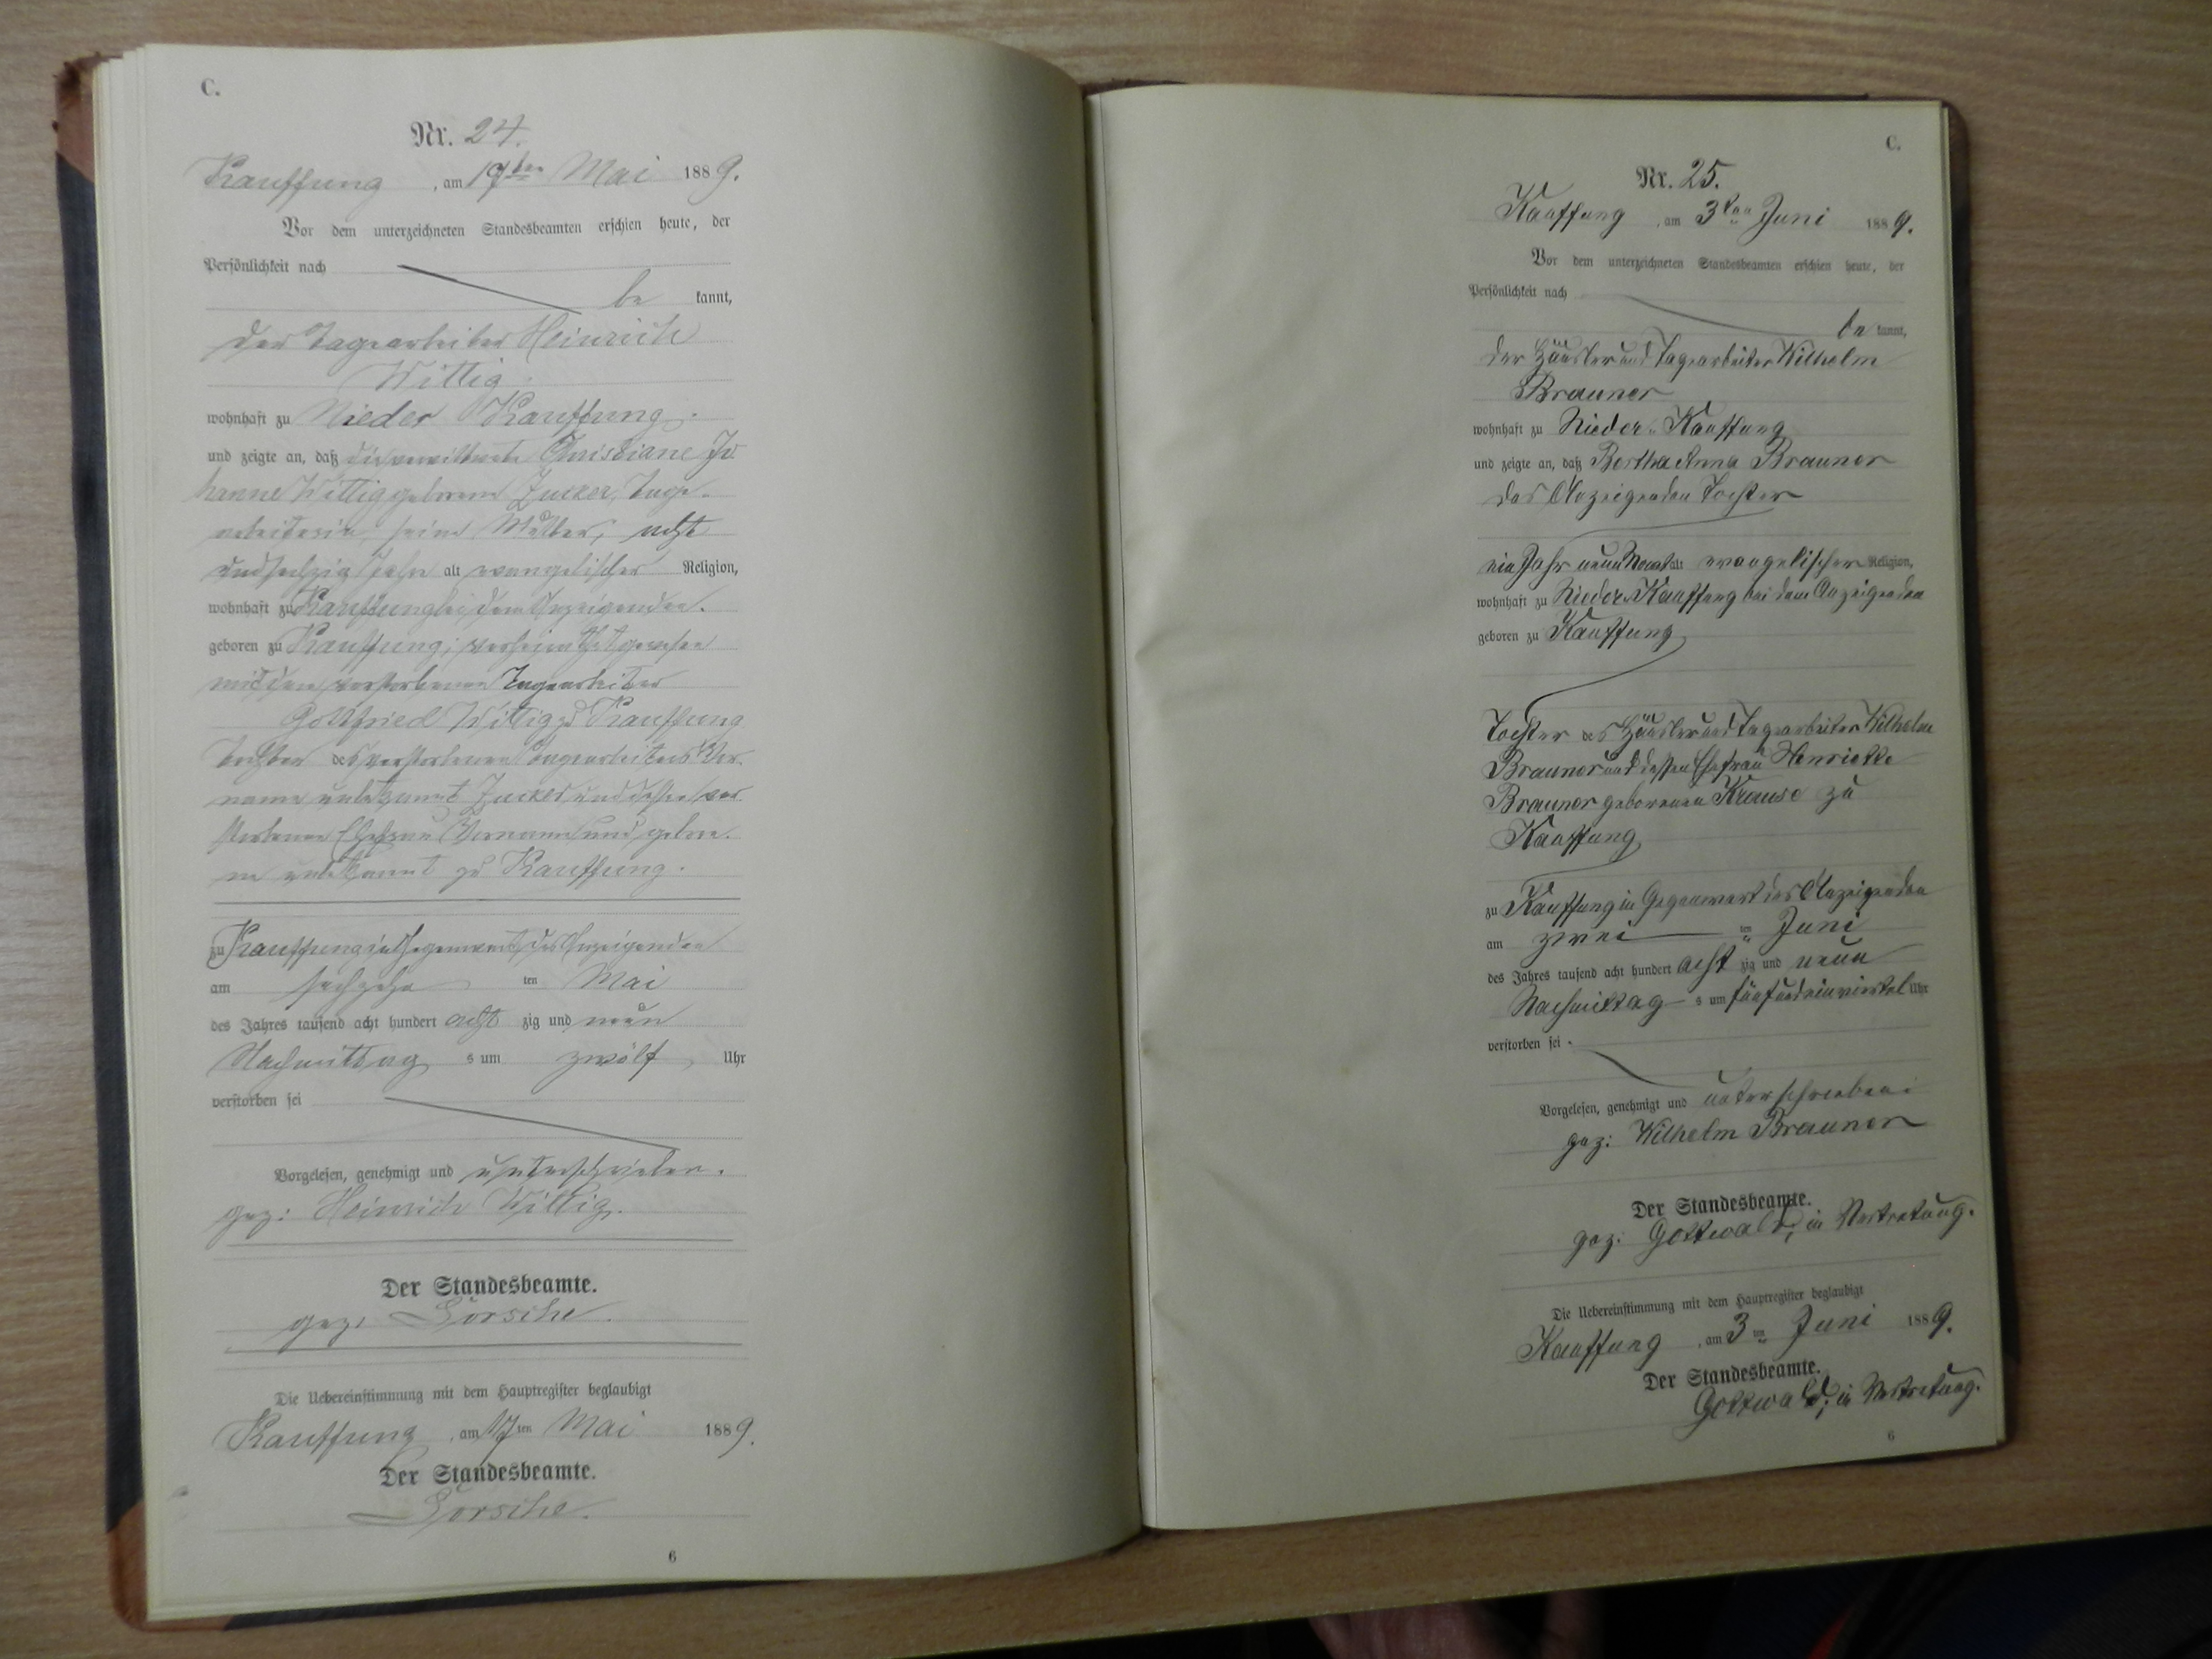 C.
Nr. 24.
Kauffung, am 17ten Mai 1889.
Vor dem unterzeichneten Standesbeamten erschien heute, der
Persönlichkeit nach
be kannt,
der Tagearbeiter Heinrich
Wittig
wohnhaft zu Nieder Kauffung.
und zeigte an, daß die verwittwete Christiane Jo
hanne Wittig geborene Zucker, Tage-
arbeiterin, seine Mutter, acht
und sechzig Jahr alt evangelischer Religion,
wohnhaft zu Kauffung bei dem Anzeigenden.
geboren zu Kauffung, verheirathet gewesen
mit dem verstorbenen Tagearbeiter
Gottfried Wittig zu Kauffung
Tochter des verstorbenen Tagearbeiters Vor-
name unbekannt Zucker und dessen ver-
storbenen Ehefrau Vorname und gebore-
ne unbekannt zu Kauffung.
zu Kauffung in Gegenwart des Anzeigenden
am sechzehn ten Mai
des Jahres tausend acht hundert acht zig und neun
Nachmittag s um zwölf Uhr
verstorben sei
Vorgelesen, genehmigt und unterschrieben.
gez: Heinrich Wittig.
Der Standesbeamte.
gez:
Die Uebereinstimmung mit dem Hauptregister beglaubigt
Kauffung, am 17ten Mai 1889.
Der Standesbeamte.
6
C.
Nr. 25.
Kauffung, am 3ten Juni 1889.
Vor dem unterzeichneten Standesbeamten erschien heute, der
Persönlichkeit nach
be kannt,
der Häusler und Tagearbeiter Wilhelm
Brauner
wohnhaft zu Nieder-Kauffung
und zeigte an, daß Bertha Anna Brauner
des Anzeigenden Tochter
ein Jahr neun Monat alt evangelischer Religion,
wohnhaft zu Nieder-Kauffung bei dem Anzeigenden
geboren zu Kauffung
Tochter des Häusler und Tagearbeiter Wilhelm
Brauner und dessen Ehefrau Henriette
Brauner geborenen Krause zu
Kauffung
zu Kauffung in Gegenwart des Anzeigenden
am zwei ten Juni
des Jahres tausend acht hundert acht zig und neun
Nachmittag s um fünf und ein viertel Uhr
verstorben sei
Vorgelesen, genehmigt und unterschrieben.
gez: Wilhelm Brauner
Der Standesbeamte.
gez: Gottwald, in Vertretung.
Die Uebereinstimmung mit dem Hauptregister beglaubigt
Kauffung, am 3ten Juni 1889.
Der Standesbeamte.
Gottwald, in Vertretung.
6